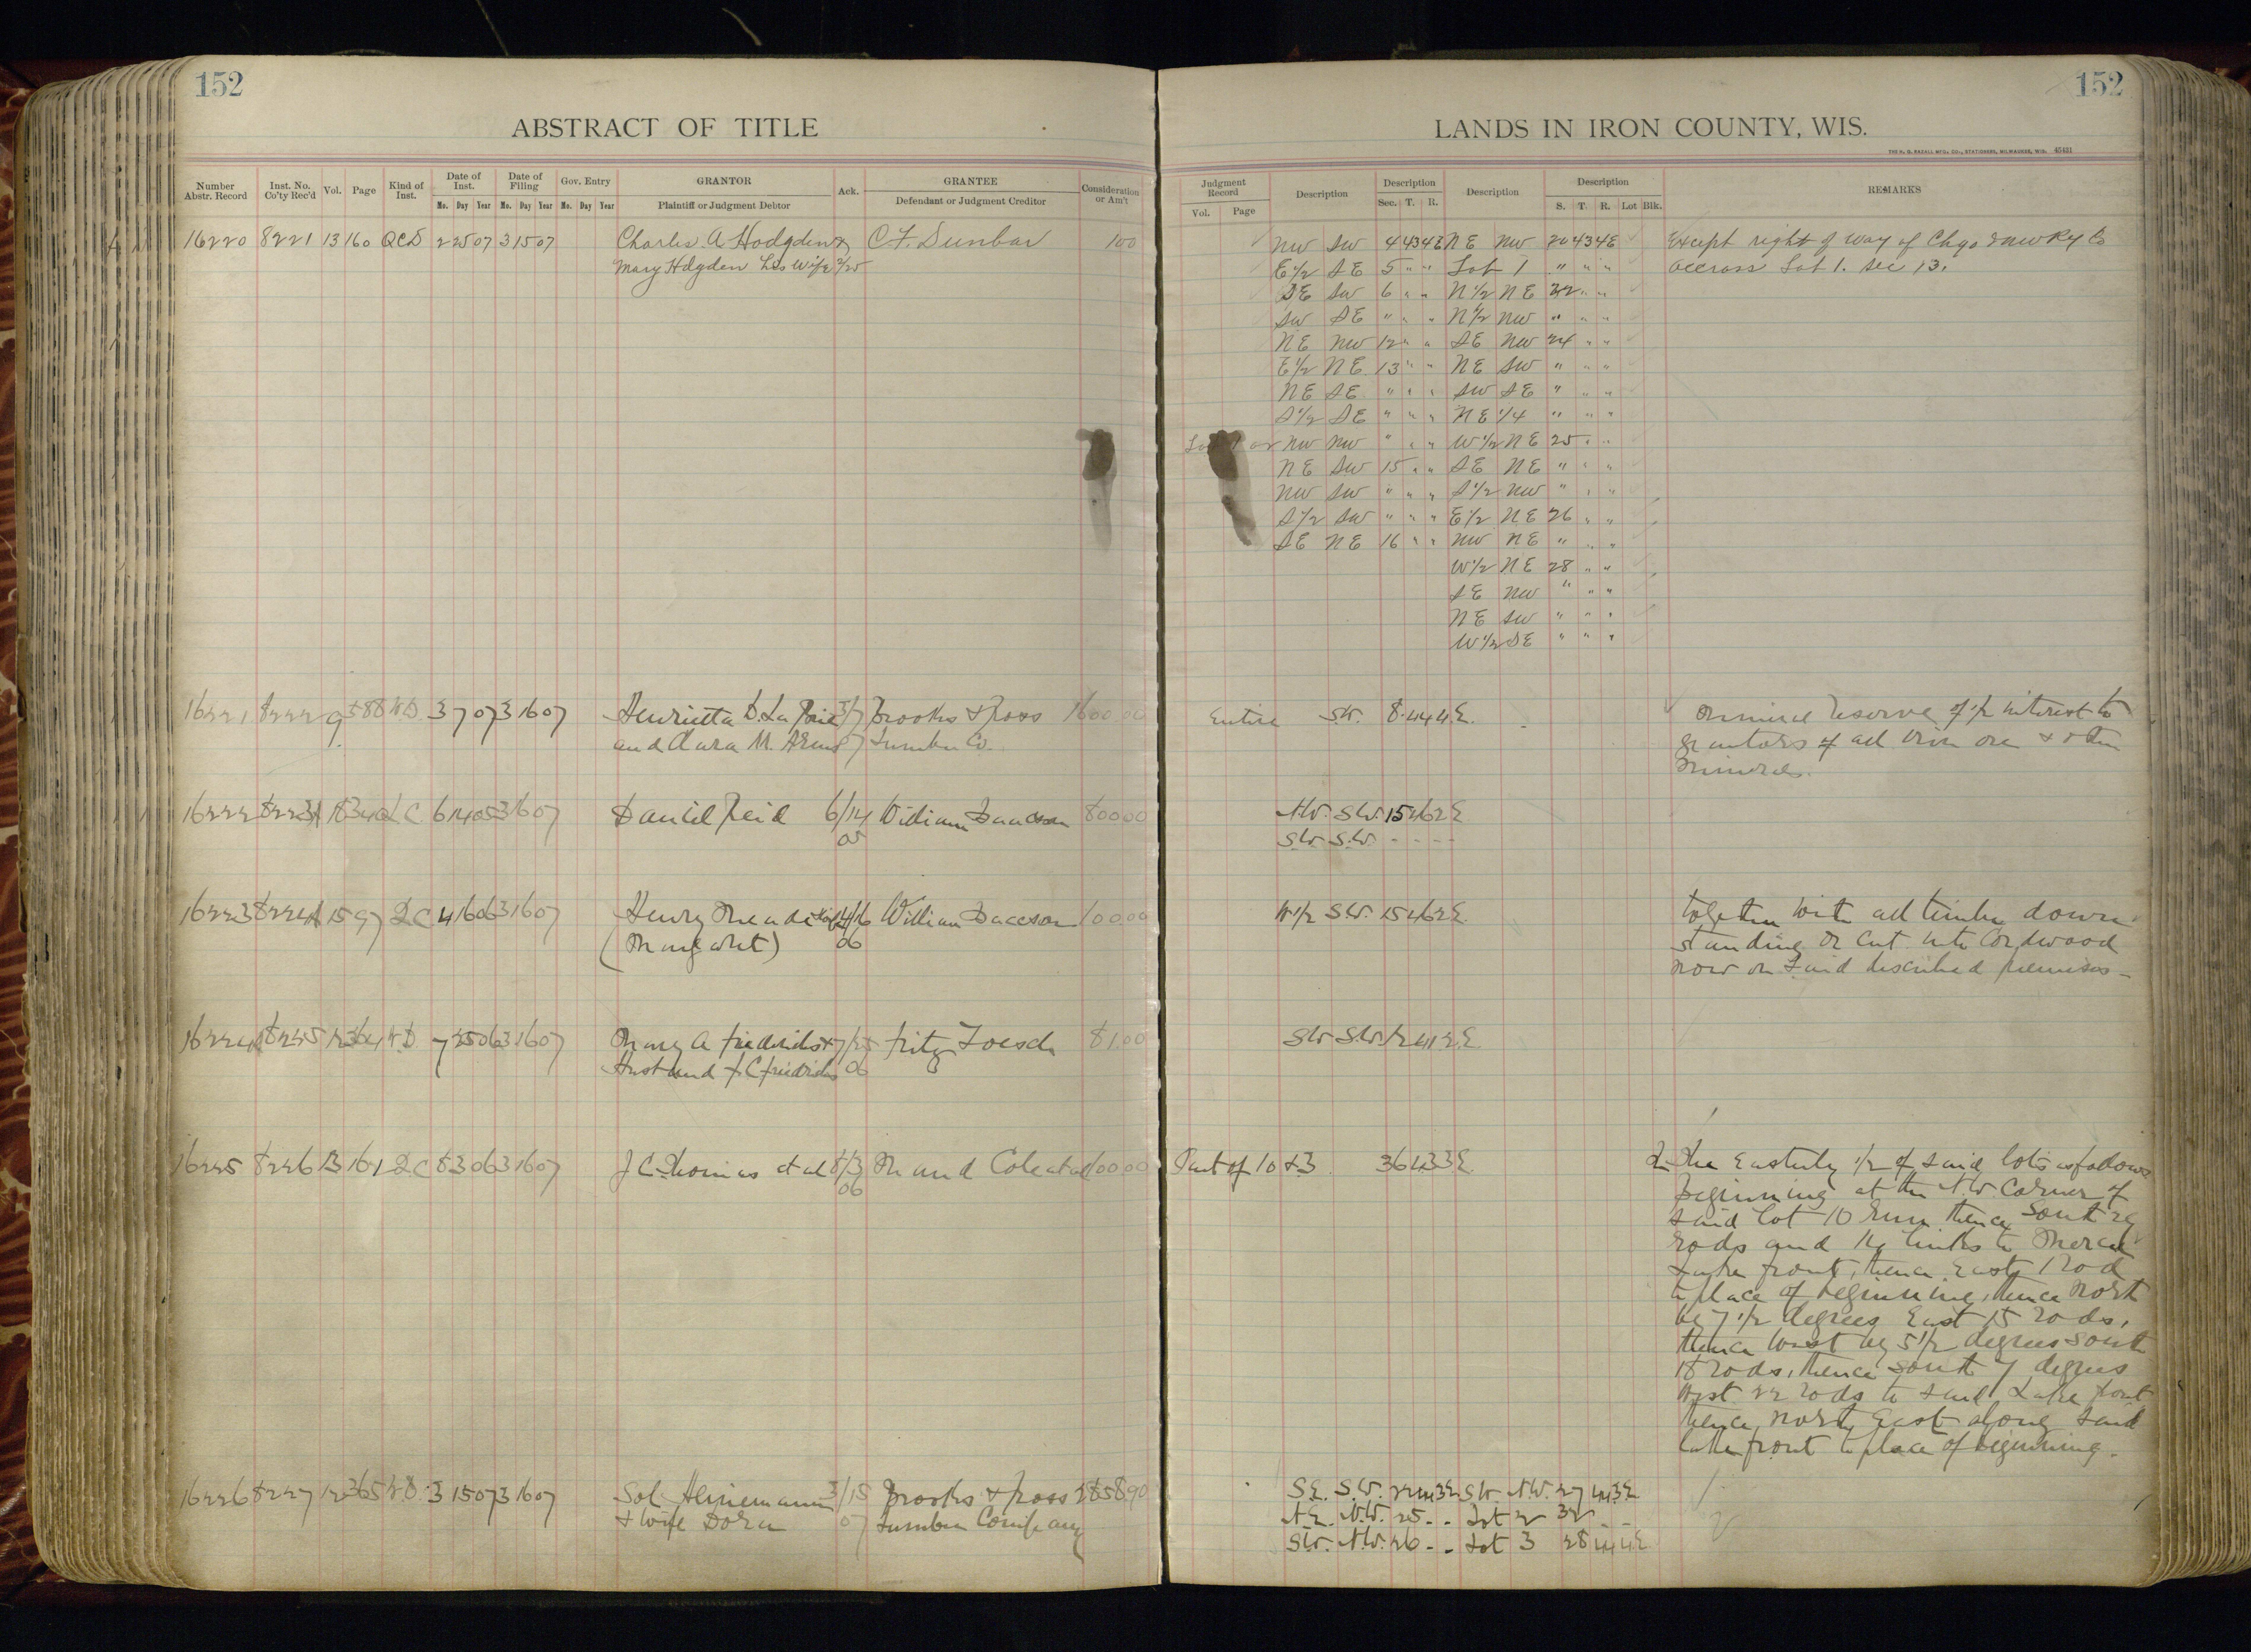 152
ABSTRACT OF TITLE
Number Abstr. Record
Inst. No. Co'ty Rec'd
Vol.
Page
Kind of Inst.
Date of Inst.
Mo. Day Year
Date of Filing
Mo. Day Year
Gov. Entry
Mo. Day Year
GRANTOR
Plaintiff or Judgment Debtor
Ack.
GRANTEE
Defendant or Judgment Creditor
Consideration or Am't
16220 8221 13 160 QCD 2 25 07 3 15 07 Charles A Hodgden & C. F. Dunbar 100
Mary Hdgden his wife 2/25
16221 8222 9 588 W.D. 3 7 07 3 16 07 Henrietta D. La 3/7 Brooks & Ross 1600.00
and Clara M. 07 Lumber Co.
16222 8223 6 14 05 3 16 07 Daniel Reid 6/14 William Isaacson 800.00
05
16223 8224 15 97 Q.C 4 16 06 3 16 07 Henry 4/16 William Isaacson 100.00
(Margaret) 06
16224 8225 12 364 W.D. 7 25 06 3 16 07 Mary A Friedrichs & 7/25 Fritz Loesch 81.00
Husband F. C. Friedrichs 06
16225 8226 13 161 Q.C 8 3 06 3 16 07 J C Thomas et al 8/3 Maud Cole et al 100.00
06
16226 8227 12 365 W.D. 3 15 07 3 16 07 Sol Heinemann 3/15 Brooks & Ross
& wife Dora 07 Lumber Company
152
LANDS IN IRON COUNTY, WIS.
THE H. G. RAZALL MFG. CO., STATIONERS, MILWAUKEE, WIS. 45431
Judgment Record
Vol. Page
Description
Description
Sec. T. R.
Description
Description
S. T. R. Lot Blk.
REMARKS
NW SW 4 43 4E NE NW 20 43 4E Except right of way of Chgo & NW Ry Co
E½ SE 5 " " Lot 1 " " " accross Lot 1. Sec 13.
SE SW 6 " " N½ NE " "
SW SE " " " N½ NW " " "
NE NW 12 " " SE NW 24 " "
E½ NE 13 " " NE SW " " "
NE SE " " " SW SE " " "
S½ SE " " " NE ¼ " " "
Lot 1 or NW NW " " " W½ NE 25 " "
NE SW 15 " " SE NE " " "
NW SW " " " S½ NW " " "
S½ SW " " " E½ NE 26 " "
SE NE 16 " " NW NE " " "
W½ NE 28 " "
SE NW " " "
NE SW " " "
W½ SE " " "
Entire SW. 8 44 4E. Reserve of ½ interest to
grantors of all iron ore & other
Minerals.
N.W. S.W. 15 46 2E
S.W. S.W. - - - -
W½ S.W. 15 46 2E. together with all timber down
standing or cut into Cordwood
now on said described premises -
S.W. S.W. 12 41 2.E.
Part of 10 & 3 36 43 3E. In the Easterly ½ of said lots as follows
Beginning at the N.W. Corner of
said lot 10 Run thence South 29
rods and 16 links to Mercer
Lake front, thence East 1 rod
to place of beginning, thence North
by 7 ½ degrees East 15 rods,
thence West by 5 ½ degrees South
15 rods, thence South 7 degrees
West 22 rods to said Lake front
thence North East along said
lake front to place of beginning.
S.E. S.W. 22 44 3E S.W. N.W. 27 44 3E
N.E. N.W. 25 - - Lot 2 32 - -
S.W. N.W. 26 - - Lot 3 28 44 4E